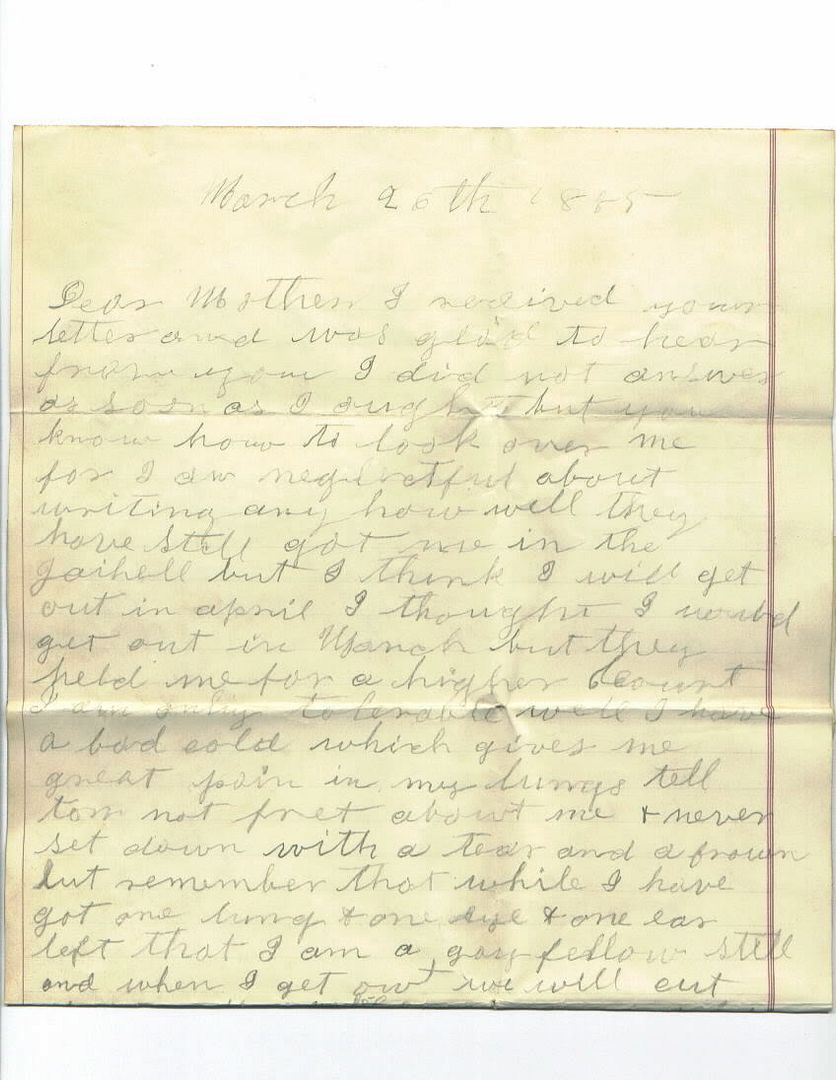 March 26th 1885
Dear Mother I received your
letter and was glad to hear
from you I did not answer
as soon as I ought but you
know how to look over me
for I am neglectful about
writing any how well they
have still got me in the
jaihell but I think I will get
out in april I thought I would
get out in March but they
held me for a higher Court
I am only tolerable well I have
a bad cold which gives me
great pain in my lungs tell
tom not fret about me & never
set down with a tear and a frown
but remember that while I have
got one lung & one eye & one ear
left that I am a gay fellow still
and when I get out we will cut